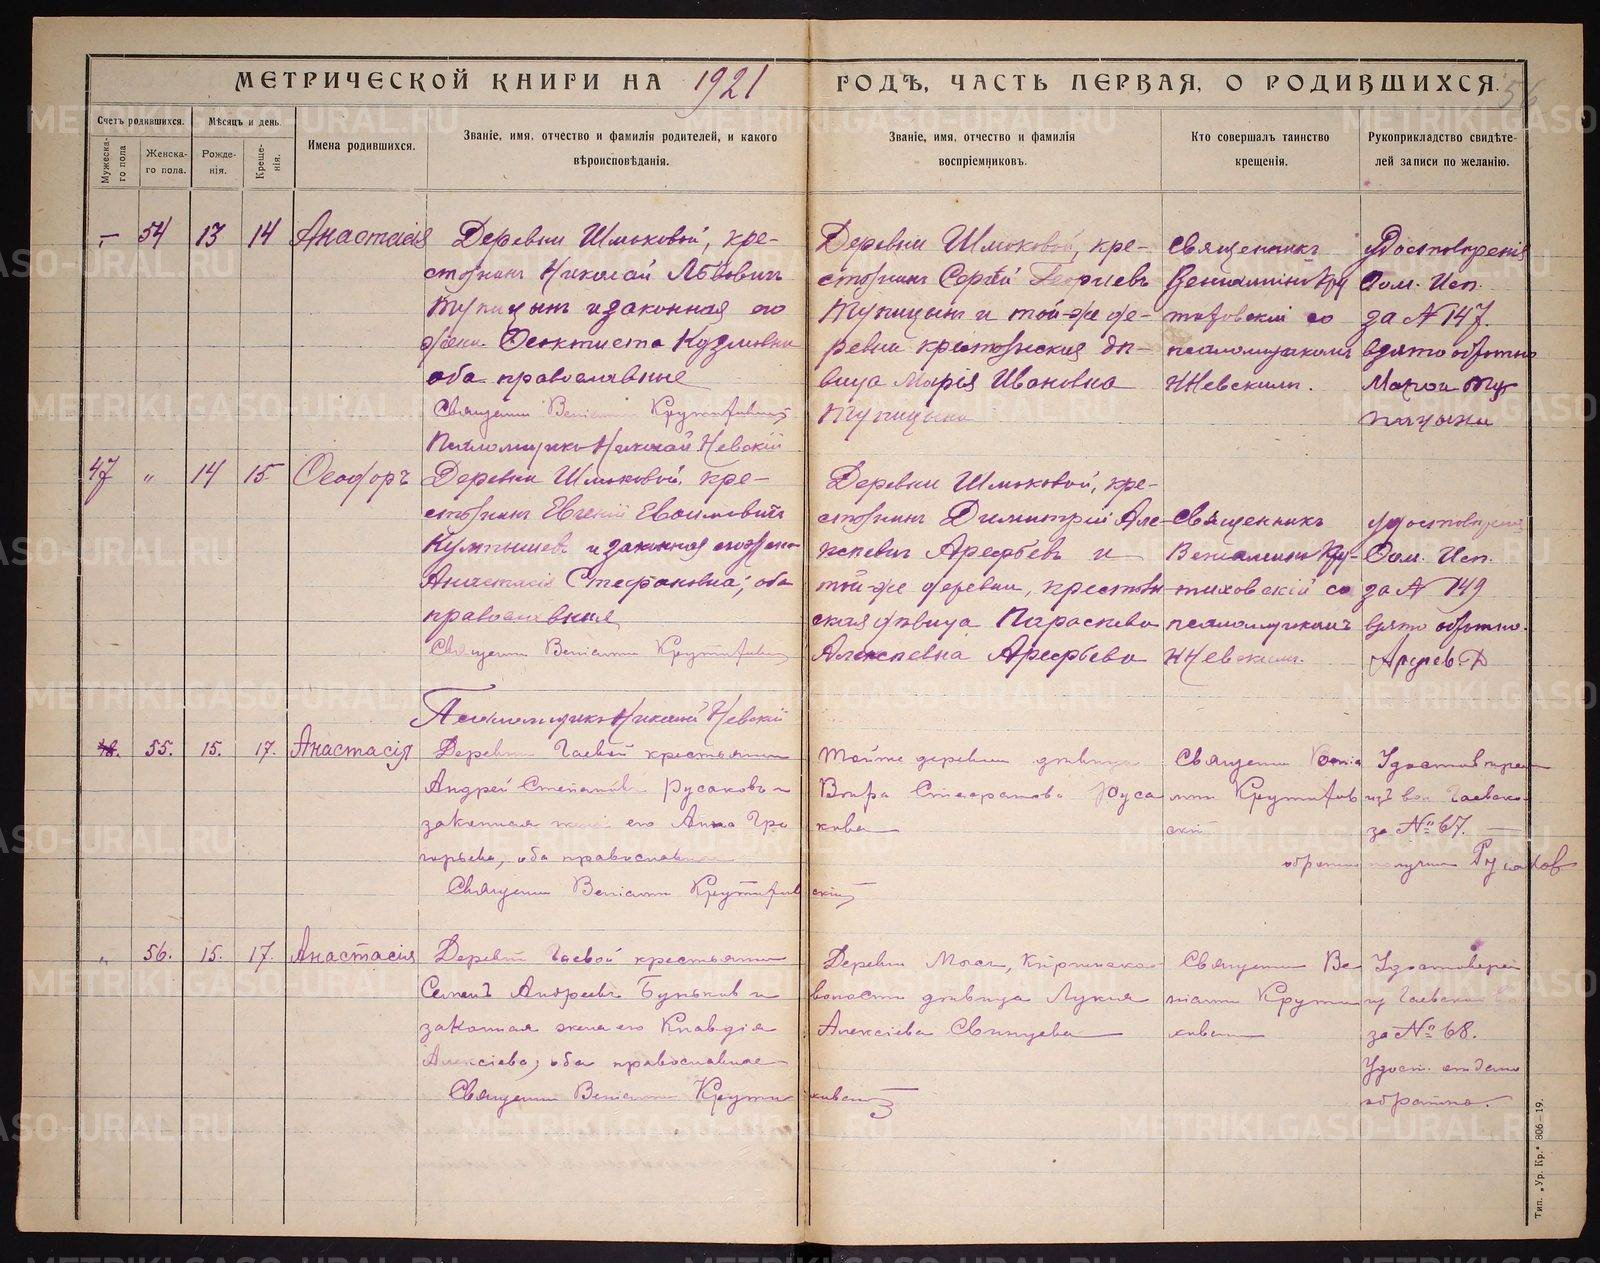 МЕТРИЧЕСКОЙ КНИГИ НА 1921 ГОДЪ, ЧАСТЬ ПЕРВАЯ, О РОДИВШИХСЯ. 56
Счетъ родившихся.
Мужеска-го пола
Женска-го пола.
Мѣсяцъ и день.
Рожде-нія.
Креще-нія.
Имена родившихся.
Званіе, имя, отчество и фамилія родителей, и какого
вѣроисповѣданія.
Званіе, имя, отчество и фамилія
воспріемниковъ.
Кто совершалъ таинство
крещенія.
Рукоприкладство свидѣте-
лей записи по желанію.
54 13 14 Анастасія
Деревни Шмаковой, кре-
стьянинъ Николай Львовичъ
Тупицынъ и законная его
жена Ѳеоктиста Кузмовна
оба православные
Священн Веніамин
Псаломщикъ Николай Невскій
Деревни Шмаковой, кре-
стьянинъ Сергѣй Георгіевъ
Тупицынъ и той-же де-
ревни крестьянская дѣ-
вица Марія Ивановна
Тупицына
Священникъ
Веніаминъ Кру
со
псаломщикомъ
Н Невскимъ.
Удостовѣреніе
Исп.
за № 147.
взято обратно
Ту
пицына
47 " 14 15 Ѳеодоръ
Деревни Шмаковой, кре-
стьянинъ Евгеній
и законная его жена
Анастасія Стефановна; оба
православныя
Священн Веніамин
Псаломщикъ Николай Невскій
Деревни Шмаковой, кре-
стьянинъ Димитрій Але-
ксѣевичъ Арефьевъ и
той-же деревни, крестьян-
ская дѣвица Параскева
Алексѣевна Арефьева
Священникъ
Веніаминъ Кру-
тиховскій со
псаломщикомъ
Н Невскимъ.
Исп.
за № 149
взято обратно.
48. 55. 15. 17. Анастасія
Деревни Гаевой крестьянин
Андрей Степановъ Русаковъ и
законная жена его Анна Гри
горьева, оба православные
Священн Веніамин Крутиховскій
Той же деревни дѣвица
Вѣра Стефанова Руса
кова
Священн Веніа
мин Крутихов
скій
Удостовѣрен
изъ вол Гаевской
за № 67.
обратно получил Русаков
" 56. 15. 17. Анастасія
Деревни Гаевой крестьянин
Семенъ Андреевъ Буньков и
законная жена его Клавдія
Алексіева, оба православные
Священн Веніамин Крути
Деревни
волости дѣвица Лукія
Алексіева
Священн Ве
ніамин Крути
Удостоверен
Гаевской
за № 68.
Удост. отдано
обратно.
Тип. „Ур. Кр.“ 806—19.
METRIKI.GASO-URAL.RU